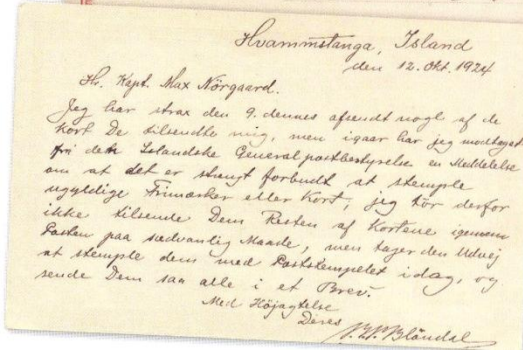 Hvammstanga, Island
den 12. Okt. 1924
Hr. Kapt. Max Nörgaard.
Jeg har strax den 9. dennes afsendt nogle af de
Kort De tilsendte mig, men igaar har jeg modtaget
fra den Islandske Generalpostbestyrelse en Meddelelse
om at det er strengt forbudt, at stemple
ugyldige Frimærker eller Kort, jeg tör derfor
ikke tilsende Dem Resten af Kortene igennem
Posten paa sædvanlig Maade, men tager den Udvej
at stemple dem med Poststempelet idag, og
sende Dem saa alle i et Brev.
Med Höjagtelse
Deres
Blöndal